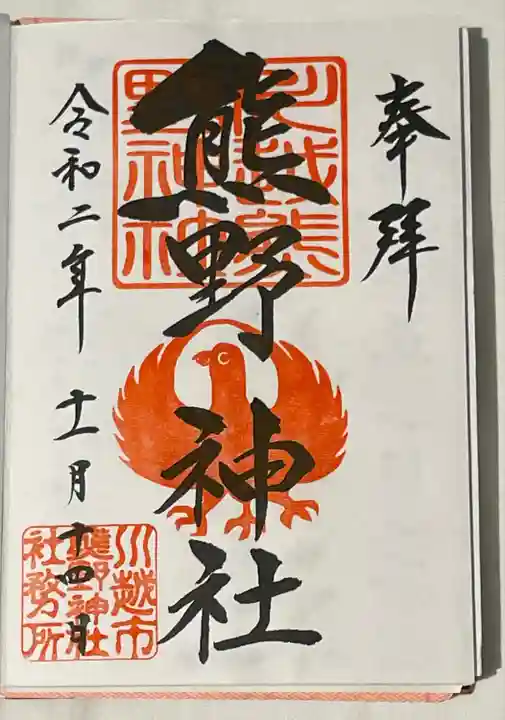 奉拝
熊野神社
川越熊
野神社
令和二年 十一月 十四日
川越市
熊野神社
社務所